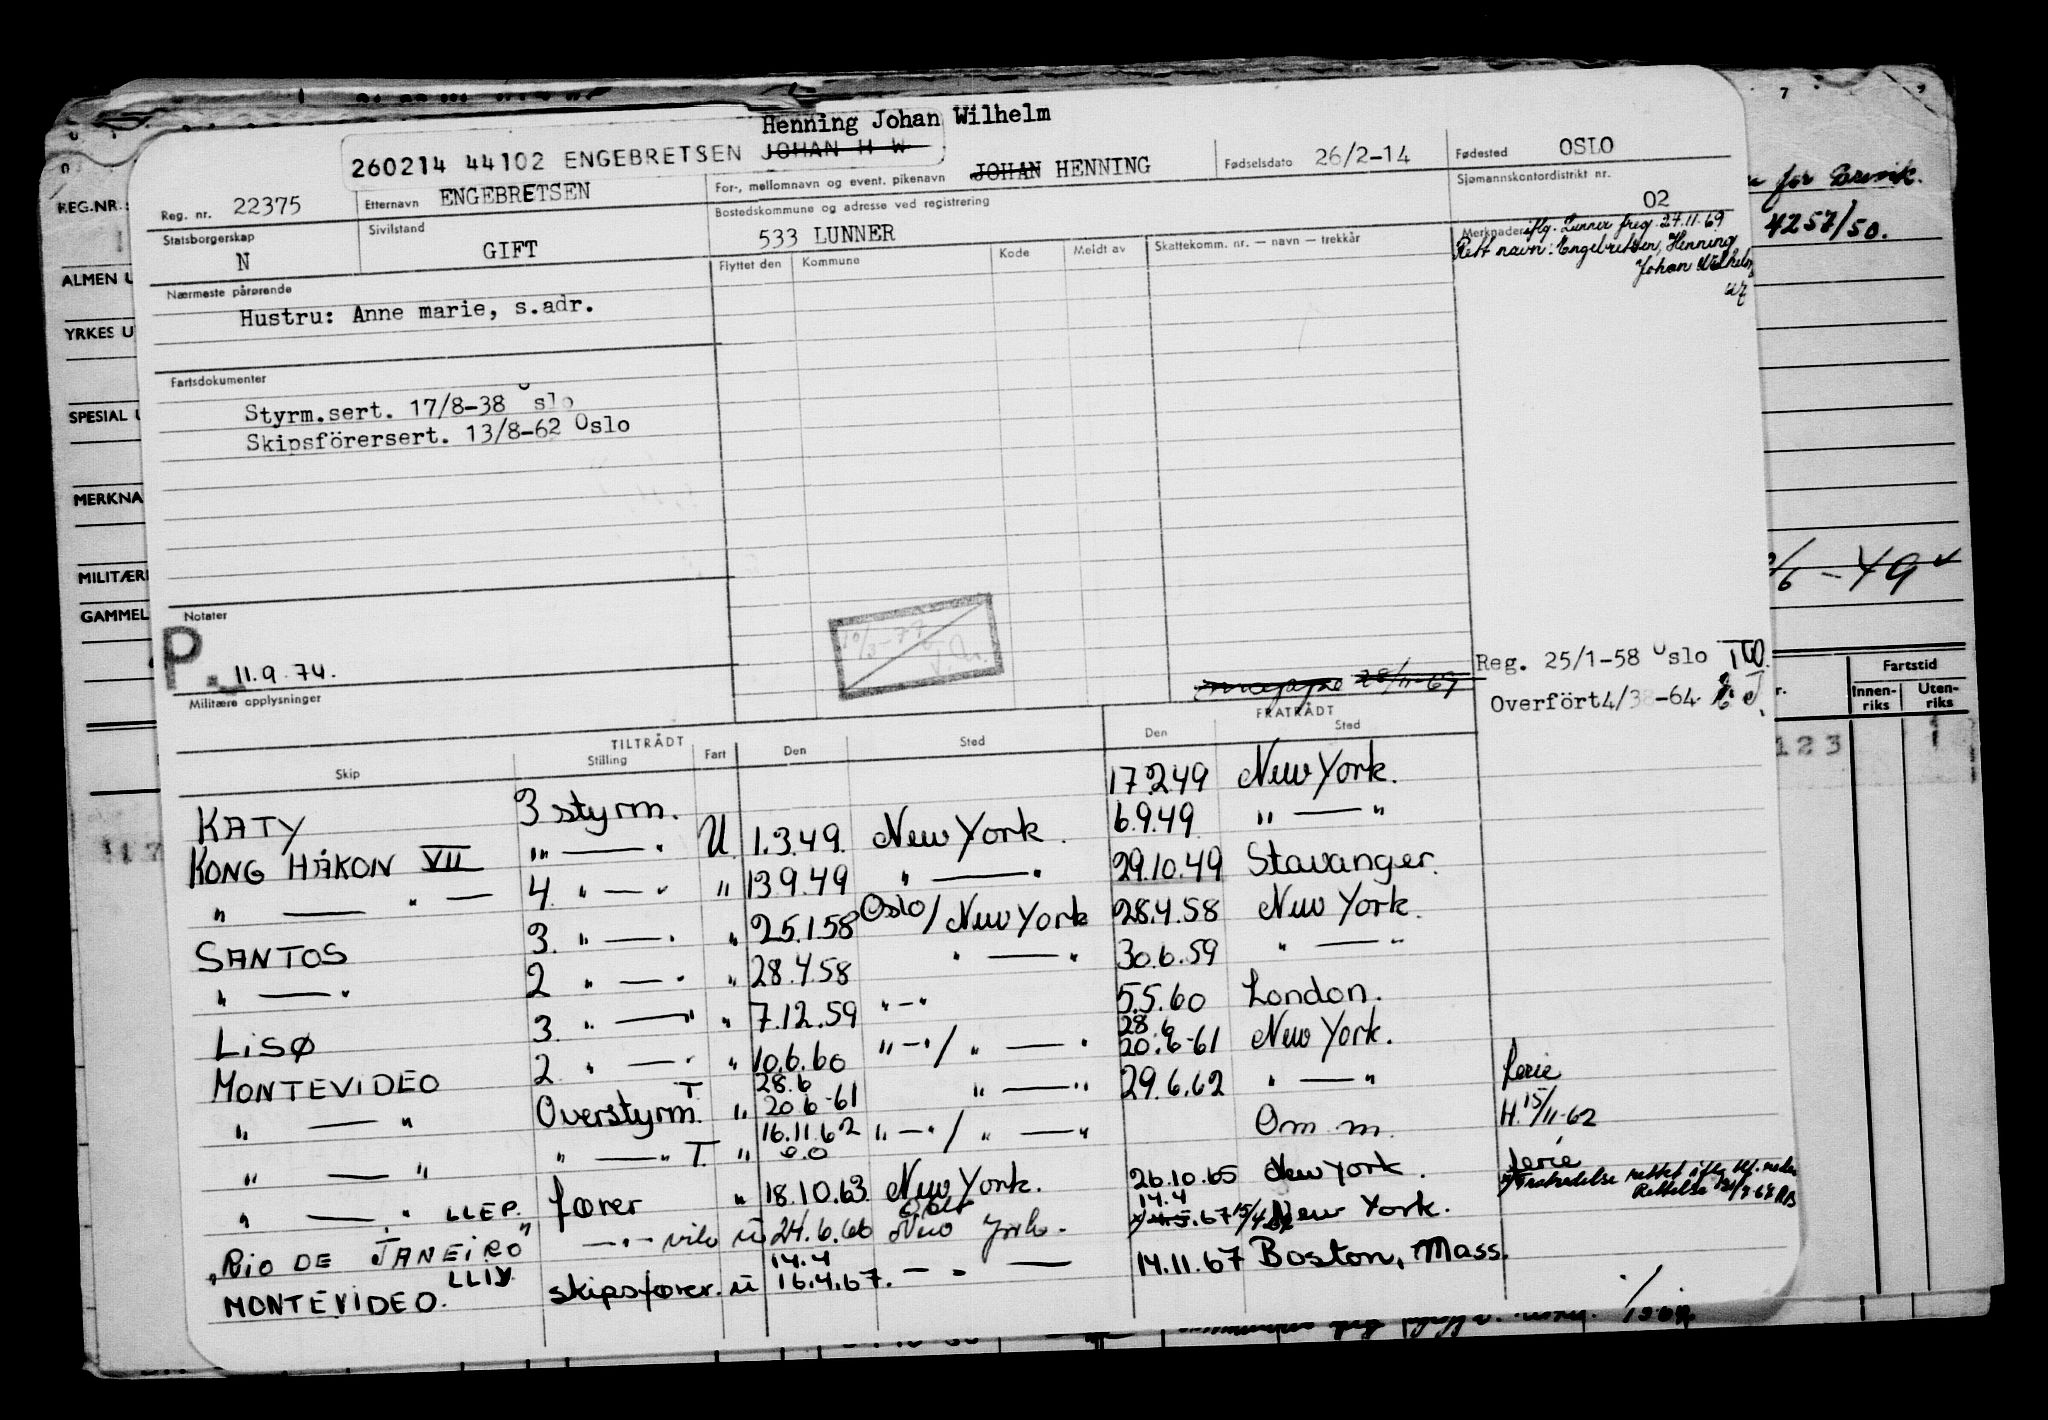 Henning Johan Wilhelm
260214 44102 ENGEBRETSEN JOHAN H W
Reg. nr. 22375
Etternavn ENGEBRETSEN
For-, mellomnavn og event. pikenavn JOHAN HENNING
Fødselsdato 26/2-14
Fødested OSLO
Statsborgerskap
N
Sivilstand
GIFT
Bostedskommune og adresse ved registrering
533 LUNNER
Sjømannskontordistrikt nr.
02
Flyttet den Kommune Kode Meldt av Skattekomm. nr. — navn — trekkår
Merknader iflg. Lunner freg. 24.11-69
Rett navn: Engebretsen, Henning
Johan Wilhelm
Nærmeste pårørende
Hustru: Anne marie, s.adr.
Fartsdokumenter
Styrm.sert. 17/8-38 Oslo
Skipsførersert. 13/8-62 Oslo
Notater
P. 11.9.74.
Militære opplysninger
28/11-69
Reg. 25/1-58 Oslo
Overfört 4/38-64.
TILTRÅDT FRATRÅDT
Skip Stilling Fart Den Sted Den Sted
KATY 3 styrm. 17.2.49 New York.
KONG HÅKON VII " — " U 1.3.49. New York. 6.9.49 " — "
" — " — 4. " — " " 13.9.49 " — " 29.10.49 Stavanger.
SANTOS 3. " — " " 25.1.58 Oslo/New York 28.4.58 New York.
" — " 2 " — " " 28.4.58 " — " 30.6.59 " — "
LISØ 3. " — " " 7.12.59 " — " 5.5.60 London.
MONTEVIDEO 2. " — " " 10.6.60 " — " / " — " 28.6 20.6-61 New York.
" — " Overstyrm. T " 28.6 20.6-61 " — " 29.6.62 " — " ferie
" — " " — " T. " 16.11.62 " — " / " — " Om m. H. 15/11-62
" — " LLEP. fører " 18.10.63. New York. 26.10.65 New York. ferie
"RIO DE JANEIRO" — " — vik U 24.6.66 New York. 14.4 .67 15/4 New York.
MONTEVIDEO. LLIY skipsfører. U 14.4 16.4.67. — " — 14.11.67 Boston, Mass.
REG.NR.:
ALMEN U
YRKES U
SPESIAL U
MERKNA
MILITÆR
GAMMEL
for Brevik.
4257/50.
/6 - 49
Fartstid
Innen-
riks
Uten-
riks
123